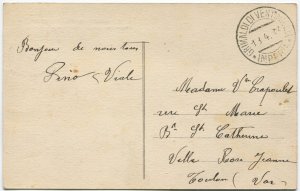 Bonjour de nous tous
Pino Viale
GRIMALDI DI VENT
1.4.
IMPERIA
Madame Vve Crapoulet
rue Ste Marie
Bd Ste Catherine
Villa Rose Jeanne
Toulon (Var)